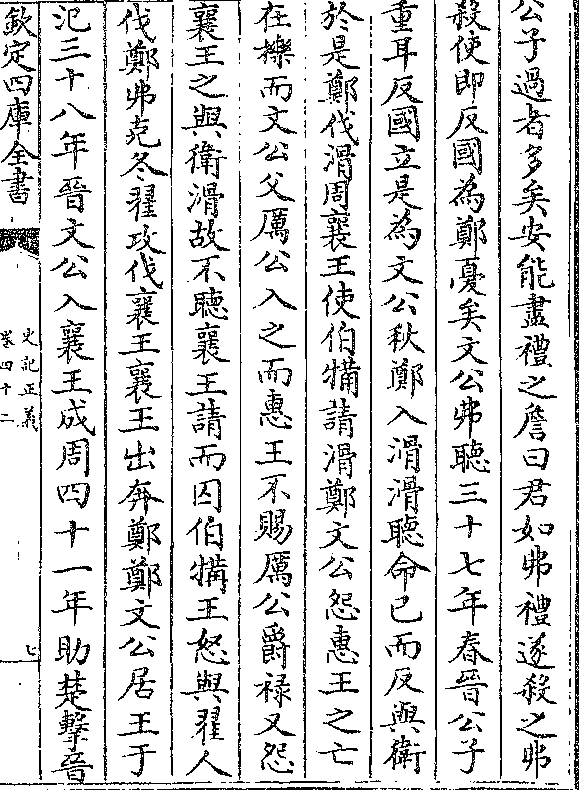 公子過者多矣安能盡禮之詹曰君如弗禮遂殺之弗
殺使即反國為鄭憂矣文公弗聽三十七年春晉公子
重耳反國立是為文公秋鄭入滑滑聽命已而反與衛
於是鄭伐滑周襄王使伯犕請滑鄭文公怨惠王之亡
在櫟而文公父厲公入之而惠王不賜厲公爵祿又怨
襄王之與衛滑故不聽襄王請而囚伯犕王怒與翟人
伐鄭弗克冬翟攻伐襄王襄王出奔鄭鄭文公居王于
氾三十八年晉文公入襄王成周四十一年助楚擊晉
欽定四庫全書
史記正義
卷四十二
七